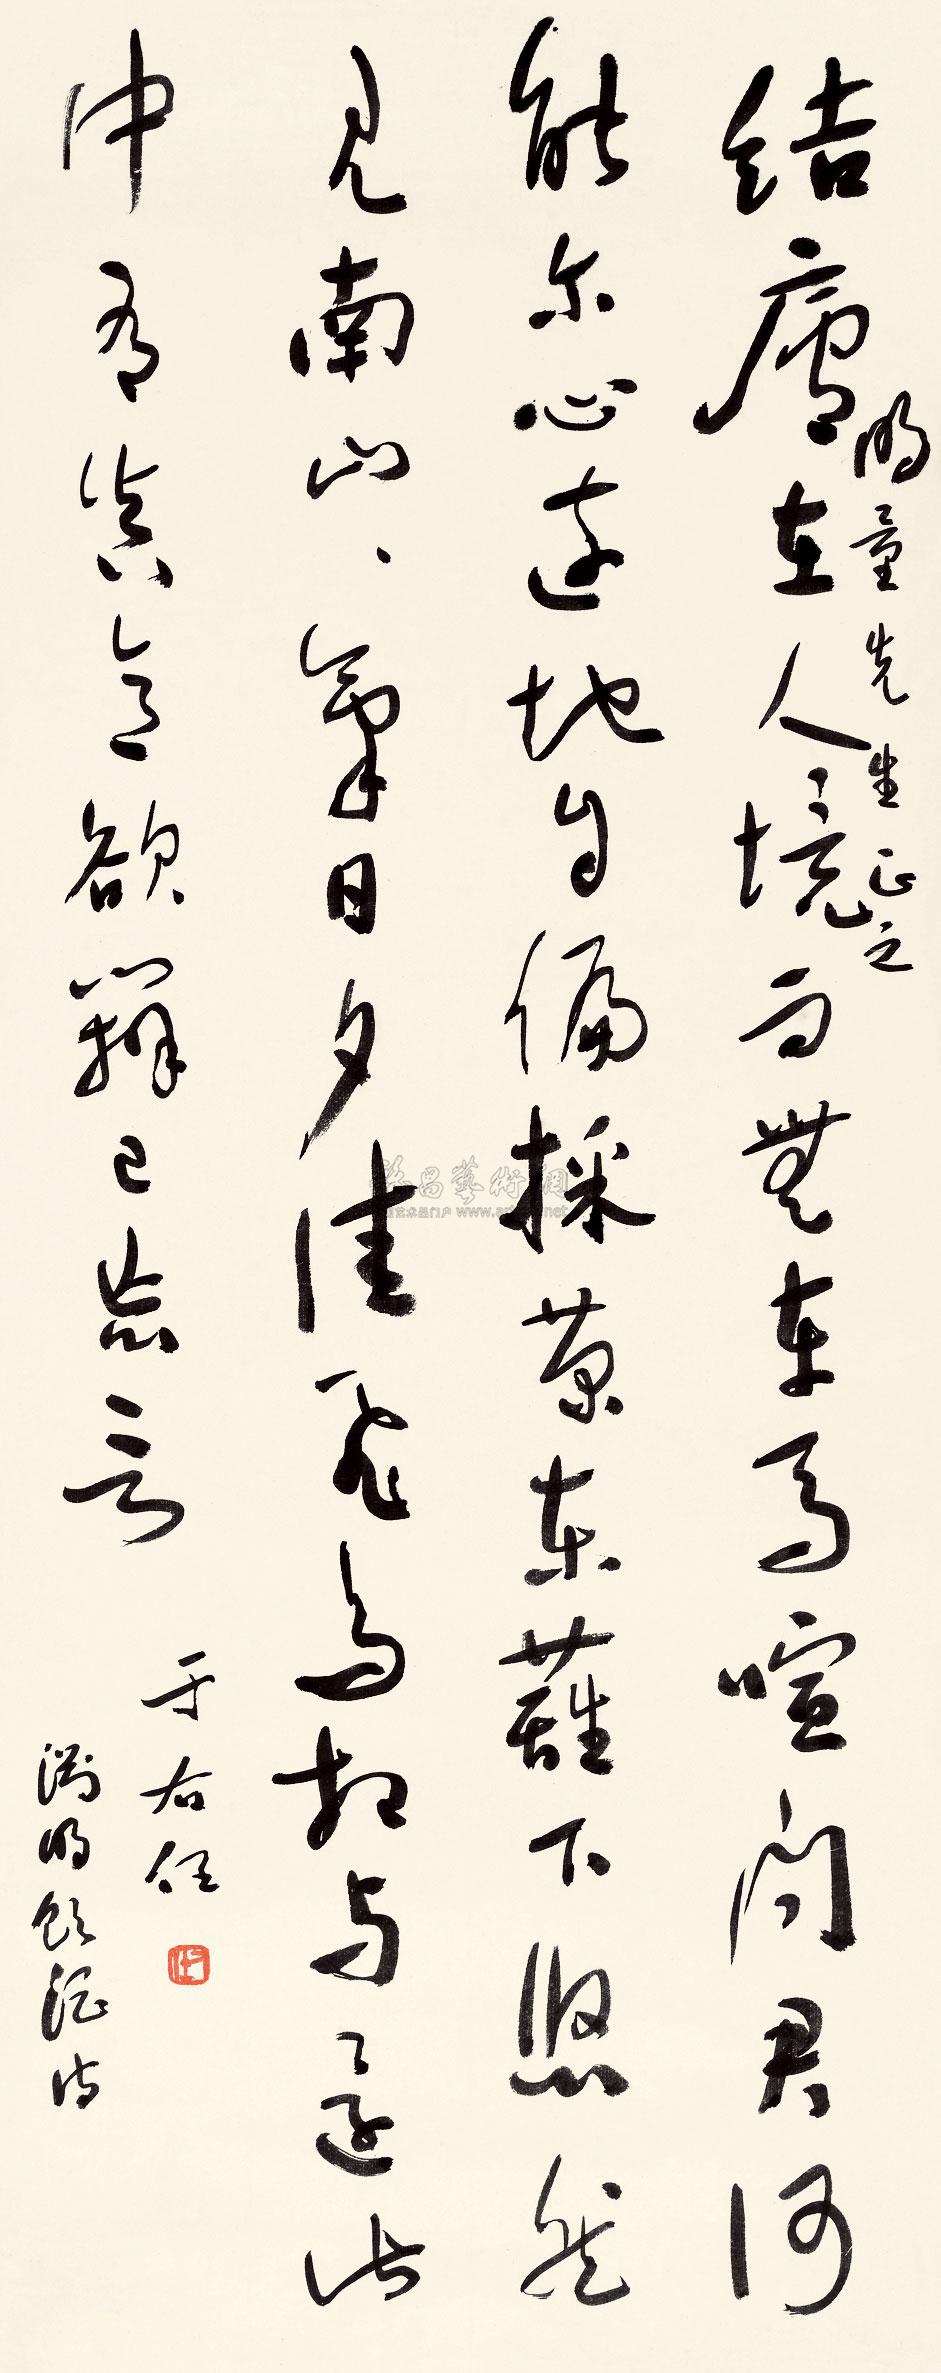 结廬在人境而無车馬喧問君何
能尔心遠地自偏採菊東籬下悠然
見南山山氣日夕佳飛鳥相与還此
中有真意欲辨已忘言
明量先生正之
于右任
淵明飲酒诗
www.artxun.net